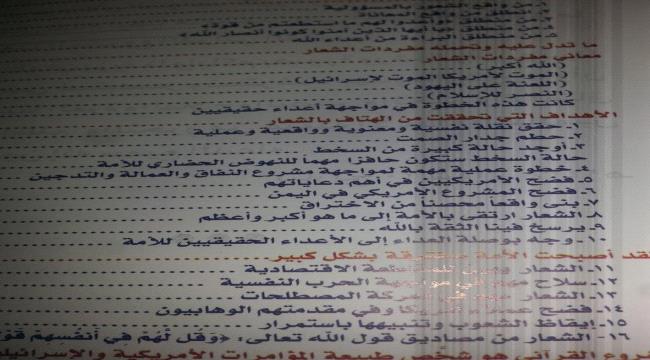 ١- من واقع الشعور بالمسؤولية
٢- من واقع المعاناة
٣- من منطلق «وأعدوا لهم ما استطعتم من قوة»
٤- من منطلق «يا أيها الذين آمنوا كونوا أنصار الله»
٥- من منطلق البراءة من أعداء الله
ما تدل عليه وتحمله مفردات الشعار
معاني مفردات الشعار
(الله أكبر)
(الموت لأمريكا الموت لإسرائيل)
(اللعنة على اليهود)
(النصر للإسلام)
كانت هذه الخطوة في مواجهة أعداء حقيقيين
الأهداف التي تحققت من الهتاف بالشعار
١- حقق نقلة نفسية ومعنوية وواقعية وعملية
٢- حطم جدار الصمت
٣- أوجد حالة كبيرة من السخط
حالة السخط ستكون حافزا مهماً للنهوض الحضاري للأمة
٤- خطوة عملية مهمة لمواجهة مشروع النفاق والعمالة والتدجين
٥- فضح الأمريكيين في أهم دعاياتهم
٦- فضح المشروع الأمريكي في اليمن
٧- بنى واقعاً محصناً من الاختراق
٨- الشعار ارتقى بالأمة إلى ما هو أكبر وأعظم
٩- يرسخ فينا الثقة بالله
١٠- وجه بوصلة العداء إلى الأعداء الحقيقيين للأمة
لقد أصبحت الأمة بشكل كبير
١١- الشعار الاقتصادية
١٢- سلاح مهم في مواجهة الحرب النفسية
١٣- الشعار مهم في معركة المصطلحات
١٤- فضح عملاء أمريكا وفي مقدمتهم الوهابيون
١٥- إيقاظ الشعوب وتنبيهها باستمرار
١٦- الشعار من مصاديق قول الله تعالى: «وقل لهم في أنفسهم قو
طبيعة المؤامرات الأمريكية والإسرائيلية